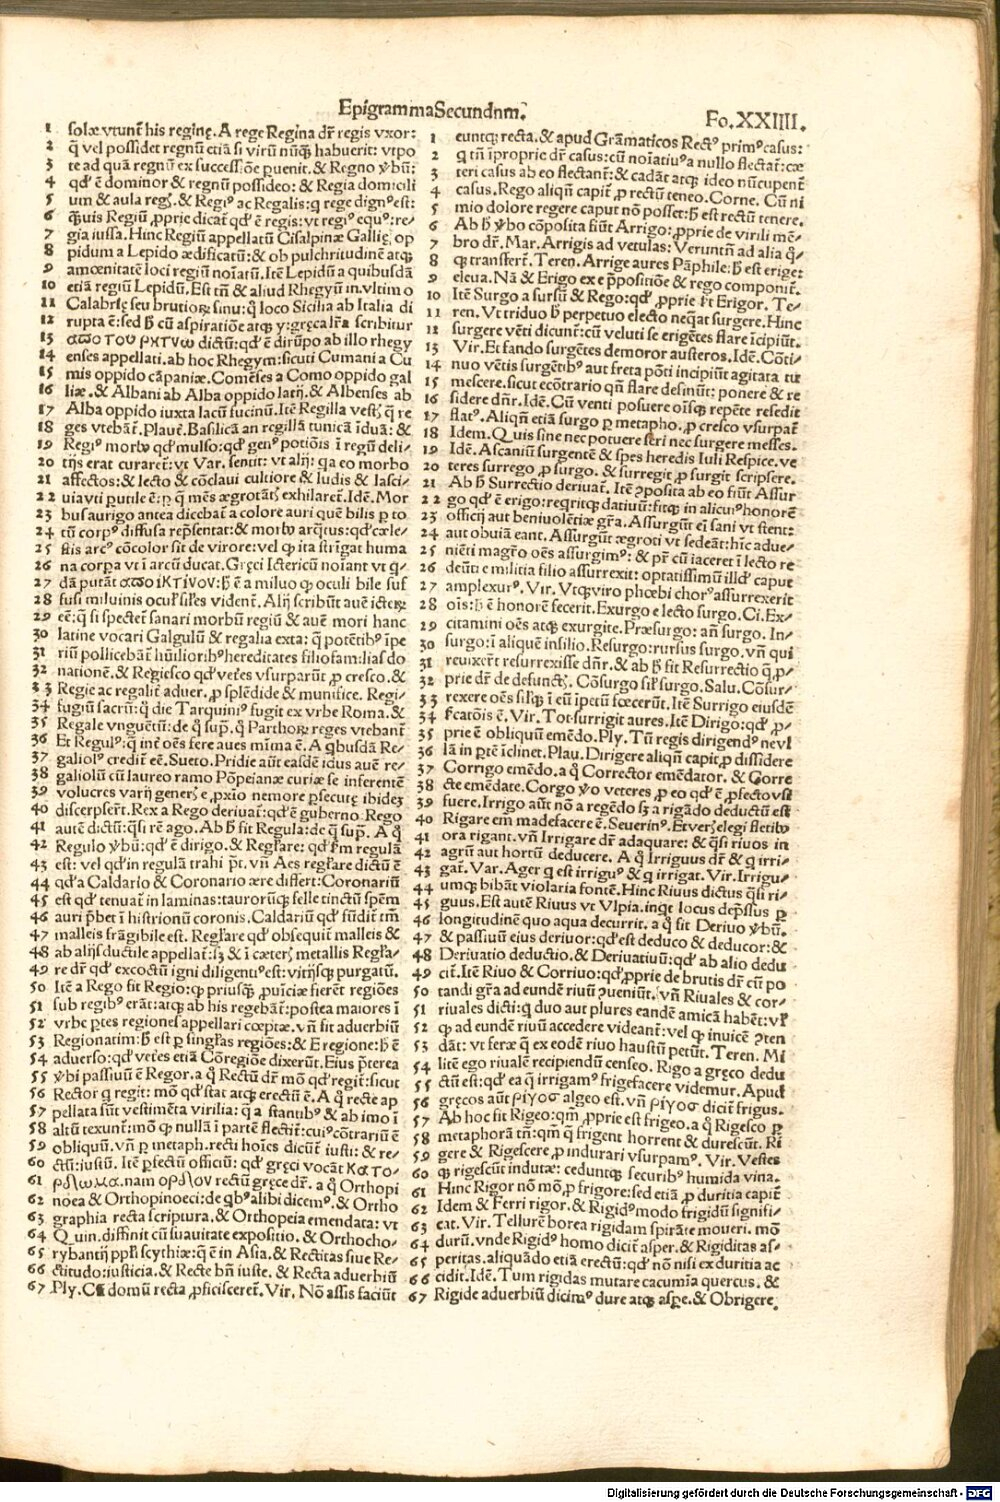 Epigramma Secundnm.
Fo.XXIIII.
1 solæ vtunt̃ his regīnę. A rege Regina dr̃ regis vxor:
2 q̃ vel possidet regnũ etiã si virũ nũq̃ habuerit: vtpo
3 te ad quã regnũ ex successiõe ꝑuenit. & Regno v̾bũ:
4 qd̾ ē dominor & regnũ possideo: & Regia domicili
5 um & aula regꝭ. & Regiꝰ ac Regalis: q rege dignꝰ est:
6 q̃uis Regiũ ꝓprie dicat̃ qd̾ ē regis: vt regiꝰ equꝰ: re/
7 gia iussa. Hinc Regiũ appellatũ Cisalpinæ Gallię op
8 pidum a Lepido ædificatũ: & ob pulchritudinē atqꝫ
9 amœnitatē loci regiũ noĩatũ. Itē Lepidũ a quibusdã
10 etiã regiũ Lepidũ. Est tñ & aliud Rhegyũ in vltimo
11 Calabrię seu brutioꝝ sinu: q̃ loco Sicilia ab Italia di
12 rupta ē: sed ħ cũ aspiratiõe atqꝫ y: gręca lr̃a scribitur
13 απο του ρκτνω dictũ: qd̾ ē dirũpo ab illo rhegy
14 enses appellati. ab hoc Rhegym: sicuti Cumani a Cu
15 mis oppido cãpaniæ. Comēses a Como oppido gal
16 liæ. & Albani ab Alba oppido latij. & Albenses ab
17 Alba oppido iuxta lacũ fucinũ. Itē Regilla vestꝭ q̃ re
18 ges vtebãt̃. Plaut̃. Basilicã an regillã tunicã ĩduã: &
19 Regiꝰ morbꝰ qd̾ mulso: qd̾ genꝰ potiõis ĩ regũ deli/
20 tijs erat curaret̃: vt Var. sentit: vt alij: qa eo morbo
21 affectos: & lecto & cõclaui cultiore & ludis & lasci/
22 uia vti ꝑutile ē: ꝑ q̃ mēs ægrotãtꝭ exhilaret̃. Idē. Mor
23 bus aurigo antea dicebat̃ a colore auri quē bilis ꝑ to
24 tũ corpꝰ diffusa rep̃sentat: & morbꝰ arq̃tus: qd̾ cæle/
25 stis arcꝰ cõcolor sit de virore: vel ꝙ ita stringat huma
26 na corpa vt ĩ arcũ ducat. Gręci Ictericũ noĩant vt q̾/
27 dã putãt απο ικτινου: ħ ē a miluo ꝙ oculi bile suf
28 fusi miluinis oculꝭ sil̃es vident̃. Alij scribũt auē icterꝫ
29 eē: q̃ si spectet̃ sanari morbũ regiũ & auē mori hanc
30 latine vocari Galgulũ & regalia exta: q̃ potētibꝰ ĩpe
31 riũ pollicebãt̃ hũilioribꝰ hereditates filiofamilias do
32 nationē. & Regiesco qd̾ vet̃es vsurparũt ꝓ cresco. &
33 Regie ac regalit̃ aduer. ꝓ splēdide & munifice. Regi/
34 fugiũ sacrũ: q̃ die Tarquiniꝰ fugit ex vrbe Roma. &
35 Regale vnguētũ: de q̃ sup̃. q̃ Parthoꝝ reges vtebant̃
36 Et Regulꝰ: q̃ int̃ oēs fere aues mĩma ē. A qbusdã Re/
37 galiolꝰ credit̃ eē. Sueto. Pridie aũt easdē idus auē re/
38 galiolũ cũ laureo ramo Põpeianæ curiæ se inferentē
39 volucres varij generꝭ e ꝓxĩo nemore ꝑsecutę ibidez
40 discerpser̃t. Rex a Rego deriuat̃: qd̾ ē guberno. Rego
41 autē dictũ: q̃si rē ago. Ab ħ fit Regula: de q̃ sup̃. A q̃
42 Regulo v̾bũ: qd̾ ē dirigo. & Regl̃are: qd̾ ẽm regulã
43 est: vel qd̾ in regulã trahi p̃t. vñ Aes regl̃are dictũ ē
44 qd̾ a Caldario & Coronario ære differt: Coronariũ
45 est qd̾ tenuat̃ in laminas: taurorũqꝫ felle tinctũ spēm
46 auri p̃bet ĩ histrionũ coronis. Caldariũ qd̾ fũdit̃ tm̃
47 malleis frãgibile est. Regl̃are qd̾ obsequit̃ malleis &
48 ab alijs ductile appellat̃: sꝫ & ĩ cæterꝭ metallis Regl̃a/
49 re dr̃ qd̾ excoctũ igni diligentiꝰ est: vitijsqꝫ purgatũ.
50 Itē a Rego fit Regio: ꝙ priusq̃ ꝓuĩciæ fierēt regiões
51 sub regibꝰ erãt: atqꝫ ab his regebãt̃: postea maiores ĩ
52 vrbe ꝑtes regiones appellari cœptæ. vñ fit aduerbiũ
53 Regionatim: ħ est ꝑ singl̃as regiões: & E regione: ħ ē
54 aduerso: qd̾ vet̃es etiã Cõregiõe dixerũt. Eius p̃terea
55 v̾bi passiuũ ē Regor. a q̃ Rectũ dr̃ mõ qd̾ regit̃: sicut
56 Rector q regit: mõ qd̾ stat atqꝫ erectũ ē. A q̃ recte ap
57 pellata sũt vestimēta virilia: q̃a stantibꝰ & ab imo ĩ
58 altũ texunt̃: mõ ꝙ nullã ĩ partē flectit̃: cuiꝰ cõtrariũ ē
59 obliquũ. vñ ꝑ metaph. recti hoĩes dicũt̃ iusti: & re/
60 ctũ: iustũ. Itē ꝑfectũ officiũ: qd̾ gręci vocãt κατο/
61 ρθωμα. nam ορθον rectũ gręce dr̃. a q̃ Orthopi
62 noea & Orthopinoeci: de qbꝰ alibi dicemꝰ. & Ortho
63 graphia recta scriptura. & Orthopeia emendata: vt
64 Quin. diffinit cũ suauitate expositio. & Orthocho/
65 rybantij ppl̃i scythiæ: q̃ ē in Asia. & Rectitas siue Re/
66 ctitudo: iusticia. & Recte bñ iuste. & Recta aduerbiũ
67 Ply. C domũ recta ꝓficisceret̃. Vir. Nõ assis faciũt
1 euntqꝫ recta. & apud Grãmaticos Rectꝰ primꝰ casus:
2 q tñ ĩproprie dr̃ casus: cũ noĩatiuꝰ a nullo flectat̃: cæ
3 teri casus ab eo flectant̃: & cadãt atqꝫ ideo nũcupent̃
4 casus. Rego aliqñ capit̃ ꝓ rectũ teneo. Corne. Cũ ni
5 mio dolore regere caput nõ posset: ħ est rectũ tenere.
6 Ab ħ v̾bo cõposita fiũt Arrigo: ꝓprie de virili mē/
7 bro dr̃. Mar. Arrigis ad vetulas: Veruntñ ad alia q̃/
8 qꝫ transfert̃. Teren. Arrige aures Pãphile: ħ est erige:
9 eleua. Nã & Erigo ex e p̃positiõe & rego componit̃.
10 Itē Surgo a sursũ & Rego: qd̾ ꝓprie ē Erigor. Te/
11 ren. Vt triduo ħ perpetuo electo neq̃at surgere. Hinc
12 surgere vēti dicunt̃: cũ veluti se erigētes flare ĩcipiũt.
13 Vir. Et fando surgētes demoror austeros. Idē. Cõti/
14 nuo vētis surgētibꝰ aut freta põti incipiũt agitata tu
15 mescere. sicut ecõtrario qñ flare desinũt: ponere & re
16 sidere dñr. Idē. Cũ venti posuere oĩsqꝫ repēte resedit
17 flatꝰ. Aliqñ etiã surgo ꝑ metapho. ꝓ cresco vsurpat̃
18 Idem. Quis sine nec potuere seri nec surgere messes.
19 Idē. Ascaniũ surgentē & spes heredis Iuli Respice. ve
20 teres surrego ꝓ surgo. & surregit ꝓ surgit scripsere.
21 Ab ħ Surrectio deriuat̃. Itē ꝯposita ab eo fiũt Assur
22 go qd̾ ē erigo: reqritqꝫ datiuũ: fitqꝫ in alicuiꝰ honorē
23 officij aut beniuolētiæ gr̃a. Assurgũt ei sani vt stent:
24 aut obuiã eant. Assurgũt ægroti vt sedeãt: hĩc adue/
25 niēti magr̃o oēs assurgimꝰ: & pr̃ cũ iaceret ĩ lecto re
26 deũti e militia filio assurrexit: optatissimũ illd̾ caput
27 amplexurꝰ. Vir. Vtqꝫ viro phœbi chorꝰ assurrexerit
28 oĩs: ħ ē honorē fecerit. Exurgo e lecto surgo. Ci. Ex/
29 citamini oēs atqꝫ exurgite. Præsurgo: añ surgo. In/
30 surgo: ĩ aliquē insilio. Resurgo: rursus surgo. vñ qui
31 reuixer̃t resurrexisse dñr. & ab ħ fit Resurrectio q̃ ꝓ/
32 prie dr̃ de defunctꝭ. Cõsurgo sil̃ surgo. Salu. Cõsur/
33 rexere oēs silq̃ ĩ cũ ĩpetũ fœcerũt. Itē Surrigo eiusdē
34 fcatõis ē. Vir. Tot surrigit aures. Itē Dirigo: qd̾ ꝓ/
35 prie ē obliquũ emēdo. Ply. Tũ regis dirigendꝰ ne vl
36 lã in ꝑtē ĩclinet. Plau. Dirigere aliqñ capit̃ ꝓ dissidere
37 Corrigo emēdo. a q̃ Corrector emēdator. & Corre
38 cte emēdate. Corgo v̾o veteres ꝓ eo qd̾ ē ꝓfecto vsi
39 fuere. Irrigo aũt nõ a regēdo sꝫ a rigãdo deductũ est
40 Rigare em̃ madefacere ē. Seuerinꝰ. Et verꝭ elegi fletibꝰ
41 ora rigant. vñ Irrigare dr̃ adaquare: & q̃si riuos in
42 agrũ aut hortũ deducere. A q̃ Irriguus dr̃ & q irri/
43 gat̃. Var. Ager q est irriguꝰ & q irrigat. Vir. Irrigu/
44 umqꝫ bibãt violaria fontē. Hinc Riuus dictus q̃si ri/
45 guus. Est autē Riuus vt Vlpia. inqt locus dep̃ssus ꝑ
46 longitudinē quo aqua decurrit. a q̃ fit Deriuo v̾bũ.
47 & passiuũ eius deriuor: qd̾ est deduco & deducor: &
48 Deriuatio deductio. & Deriuatiuũ: qd̾ ab alio dedu
49 cit̃. Itē Riuo & Corriuo: qd̾ ꝓprie de brutis dr̃ cũ po
50 tandi gr̃a ad eundē riuũ ꝯueniũt. vñ Riuales & cor/
51 riuales dicti: q duo aut plures eandē amicã habēt: vl̃
52 ꝙ ad eundē riuũ accedere videant̃: vel ꝙ inuicē ꝯten
53 dãt: vt feræ q̃ ex eodē riuo haustũ petũt. Teren. Mi
54 litē ego riualē recipiendũ censeo. Rigo a gręco dedu
55 ctũ est: qd̾ ea q̃ irrigamꝰ frigefacere videmur. Apud
56 gręcos aũt ριγοσ algeo est. vñ ριγοσ dicit̃ frigus.
57 Ab hoc fit Rigeo: qm̃ ꝓprie est frigeo. a q̃ Rigesco ꝑ
58 metaphorã tñ: qm̃ q̃ frigent horrent & durescũt. Ri
59 gere & Rigescere ꝓ indurari vsurpamꝰ. Vir. Vestes
60 qꝫ rigescũt indutæ: ceduntqꝫ securibꝰ humida vina.
61 Hinc Rigor nõ mõ ꝓ frigore: sed etiã ꝓ duritia capit̃
62 Idem & Ferri rigor. & Rigidꝰ modo frigidũ signifi/
63 cat. Vir. Tellurē borea rigidam spirãte moueri. mõ
64 durũ. vnde Rigidꝰ homo dicit̃ asper. & Rigiditas as/
65 peritas. aliquãdo etiã erectũ: qd̾ nõ nisi ex duritia ac
66 cidit. Idē. Tum rigidas mutare cacumĩa quercus. &
67 Rigide aduerbiũ dicimꝰ dure atqꝫ aspe. & Obrigere.
Digitalisierung gefördert durch die Deutsche Forschungsgemeinschaft - DFG